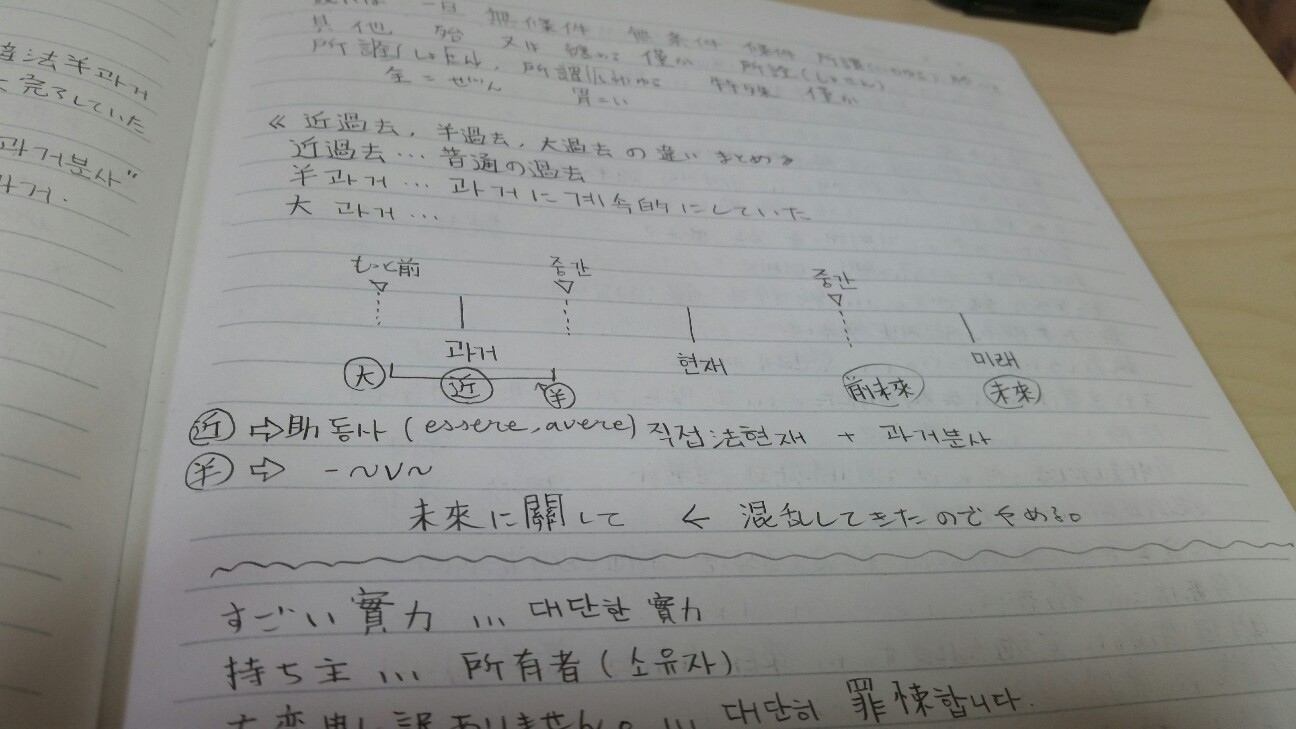 違法半과거
完了していた
과거분사"
과거.
一旦 無條件 無条件 條件 所謂
其他 殆 又は 纏める 僅か 所詮(しょせん)
所謂 特殊 僅か
全=ぜん 胃=い
≪近過去, 半過去, 大過去の違いまとめ≫
近過去…普通の過去
半과거…과거に継続的にしていた
大과거…
もっと前 중간 중간
과거 현재 미래
大 近 半 前未来 未来
近 ⇨ 助동사 (essere, avere) 직접법현재 + 과거분사
半 ⇨ -~v~
未來に關して ← 混乱してきたのでやめる。
すごい實力 … 대단한 實力
持ち主 … 所有者(소유자)
大変申し訳ありません。… 대단히 罪悚합니다.